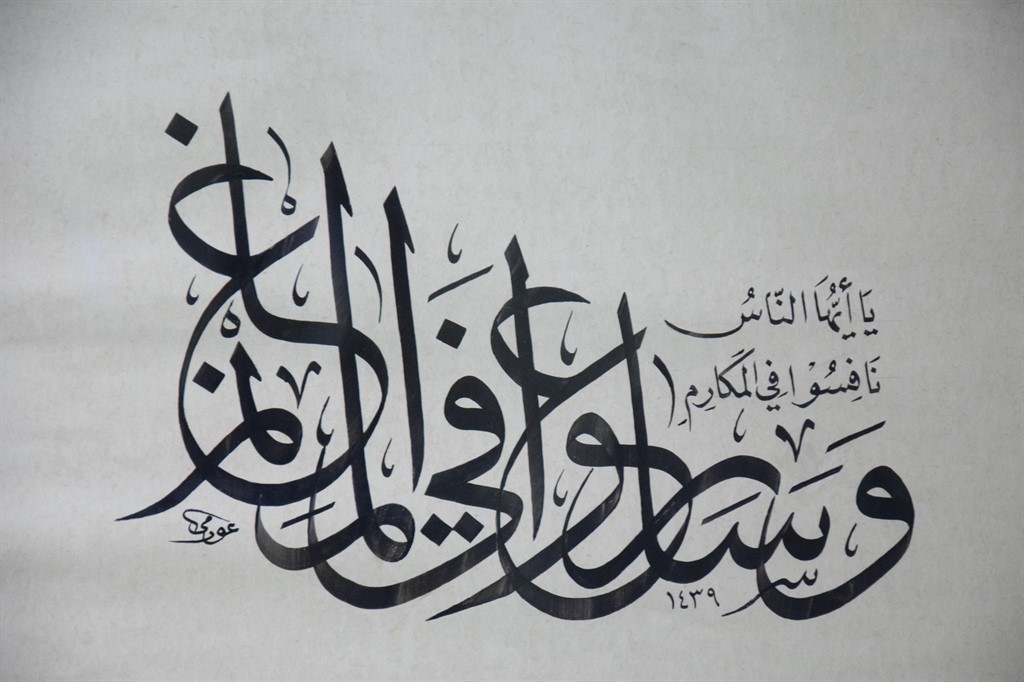 يَا أَيُّهَا النَّاسُ
نَافِسُوْا فِي المَكَارِمِ
وَسَارِعُوا فِي المَغَانِم
١٤٣٩